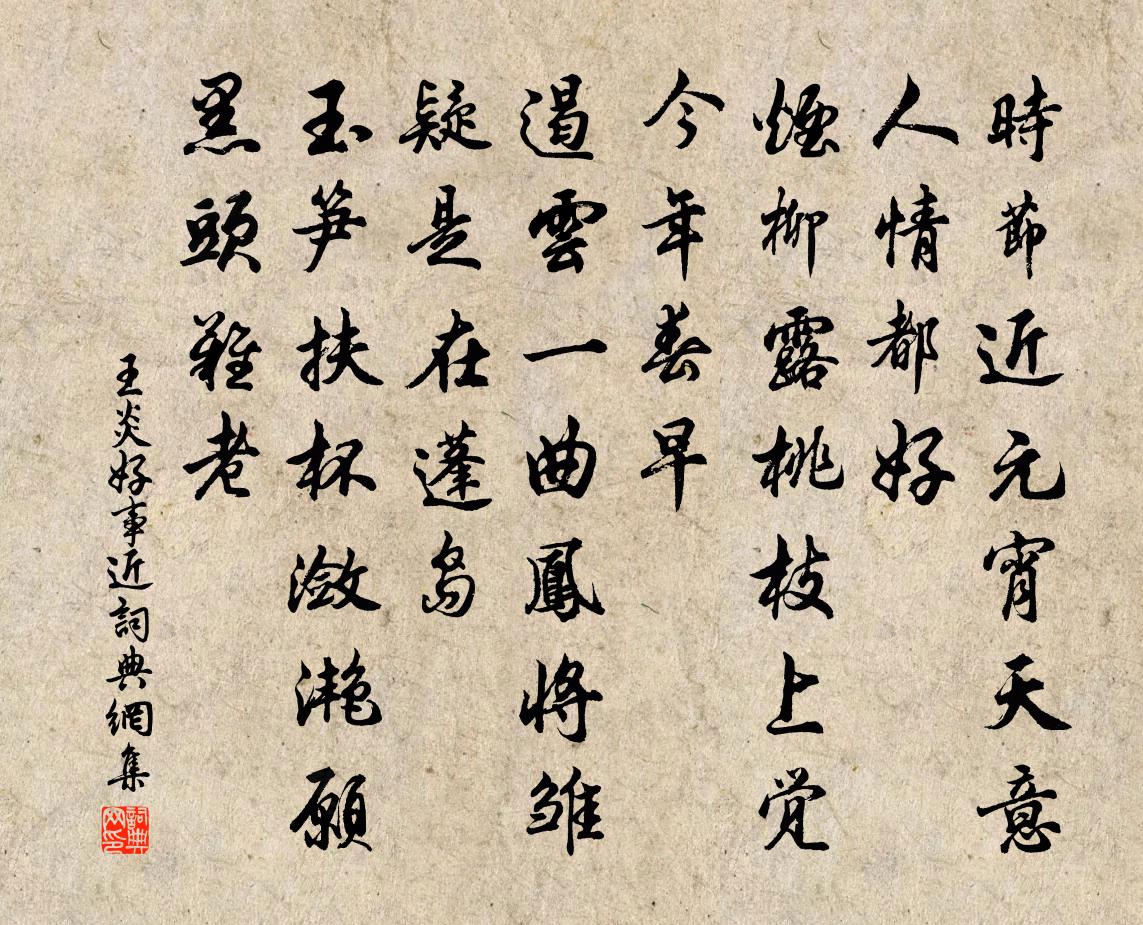 時節近元宵天意
人情都好
煙柳露桃枝上覺
今年春早
遏雲一曲鳳將雛
疑是在蓬島
玉笋扶杯瀲灔願
黑頭難老
王炎好事近詞典網集
詞典网印